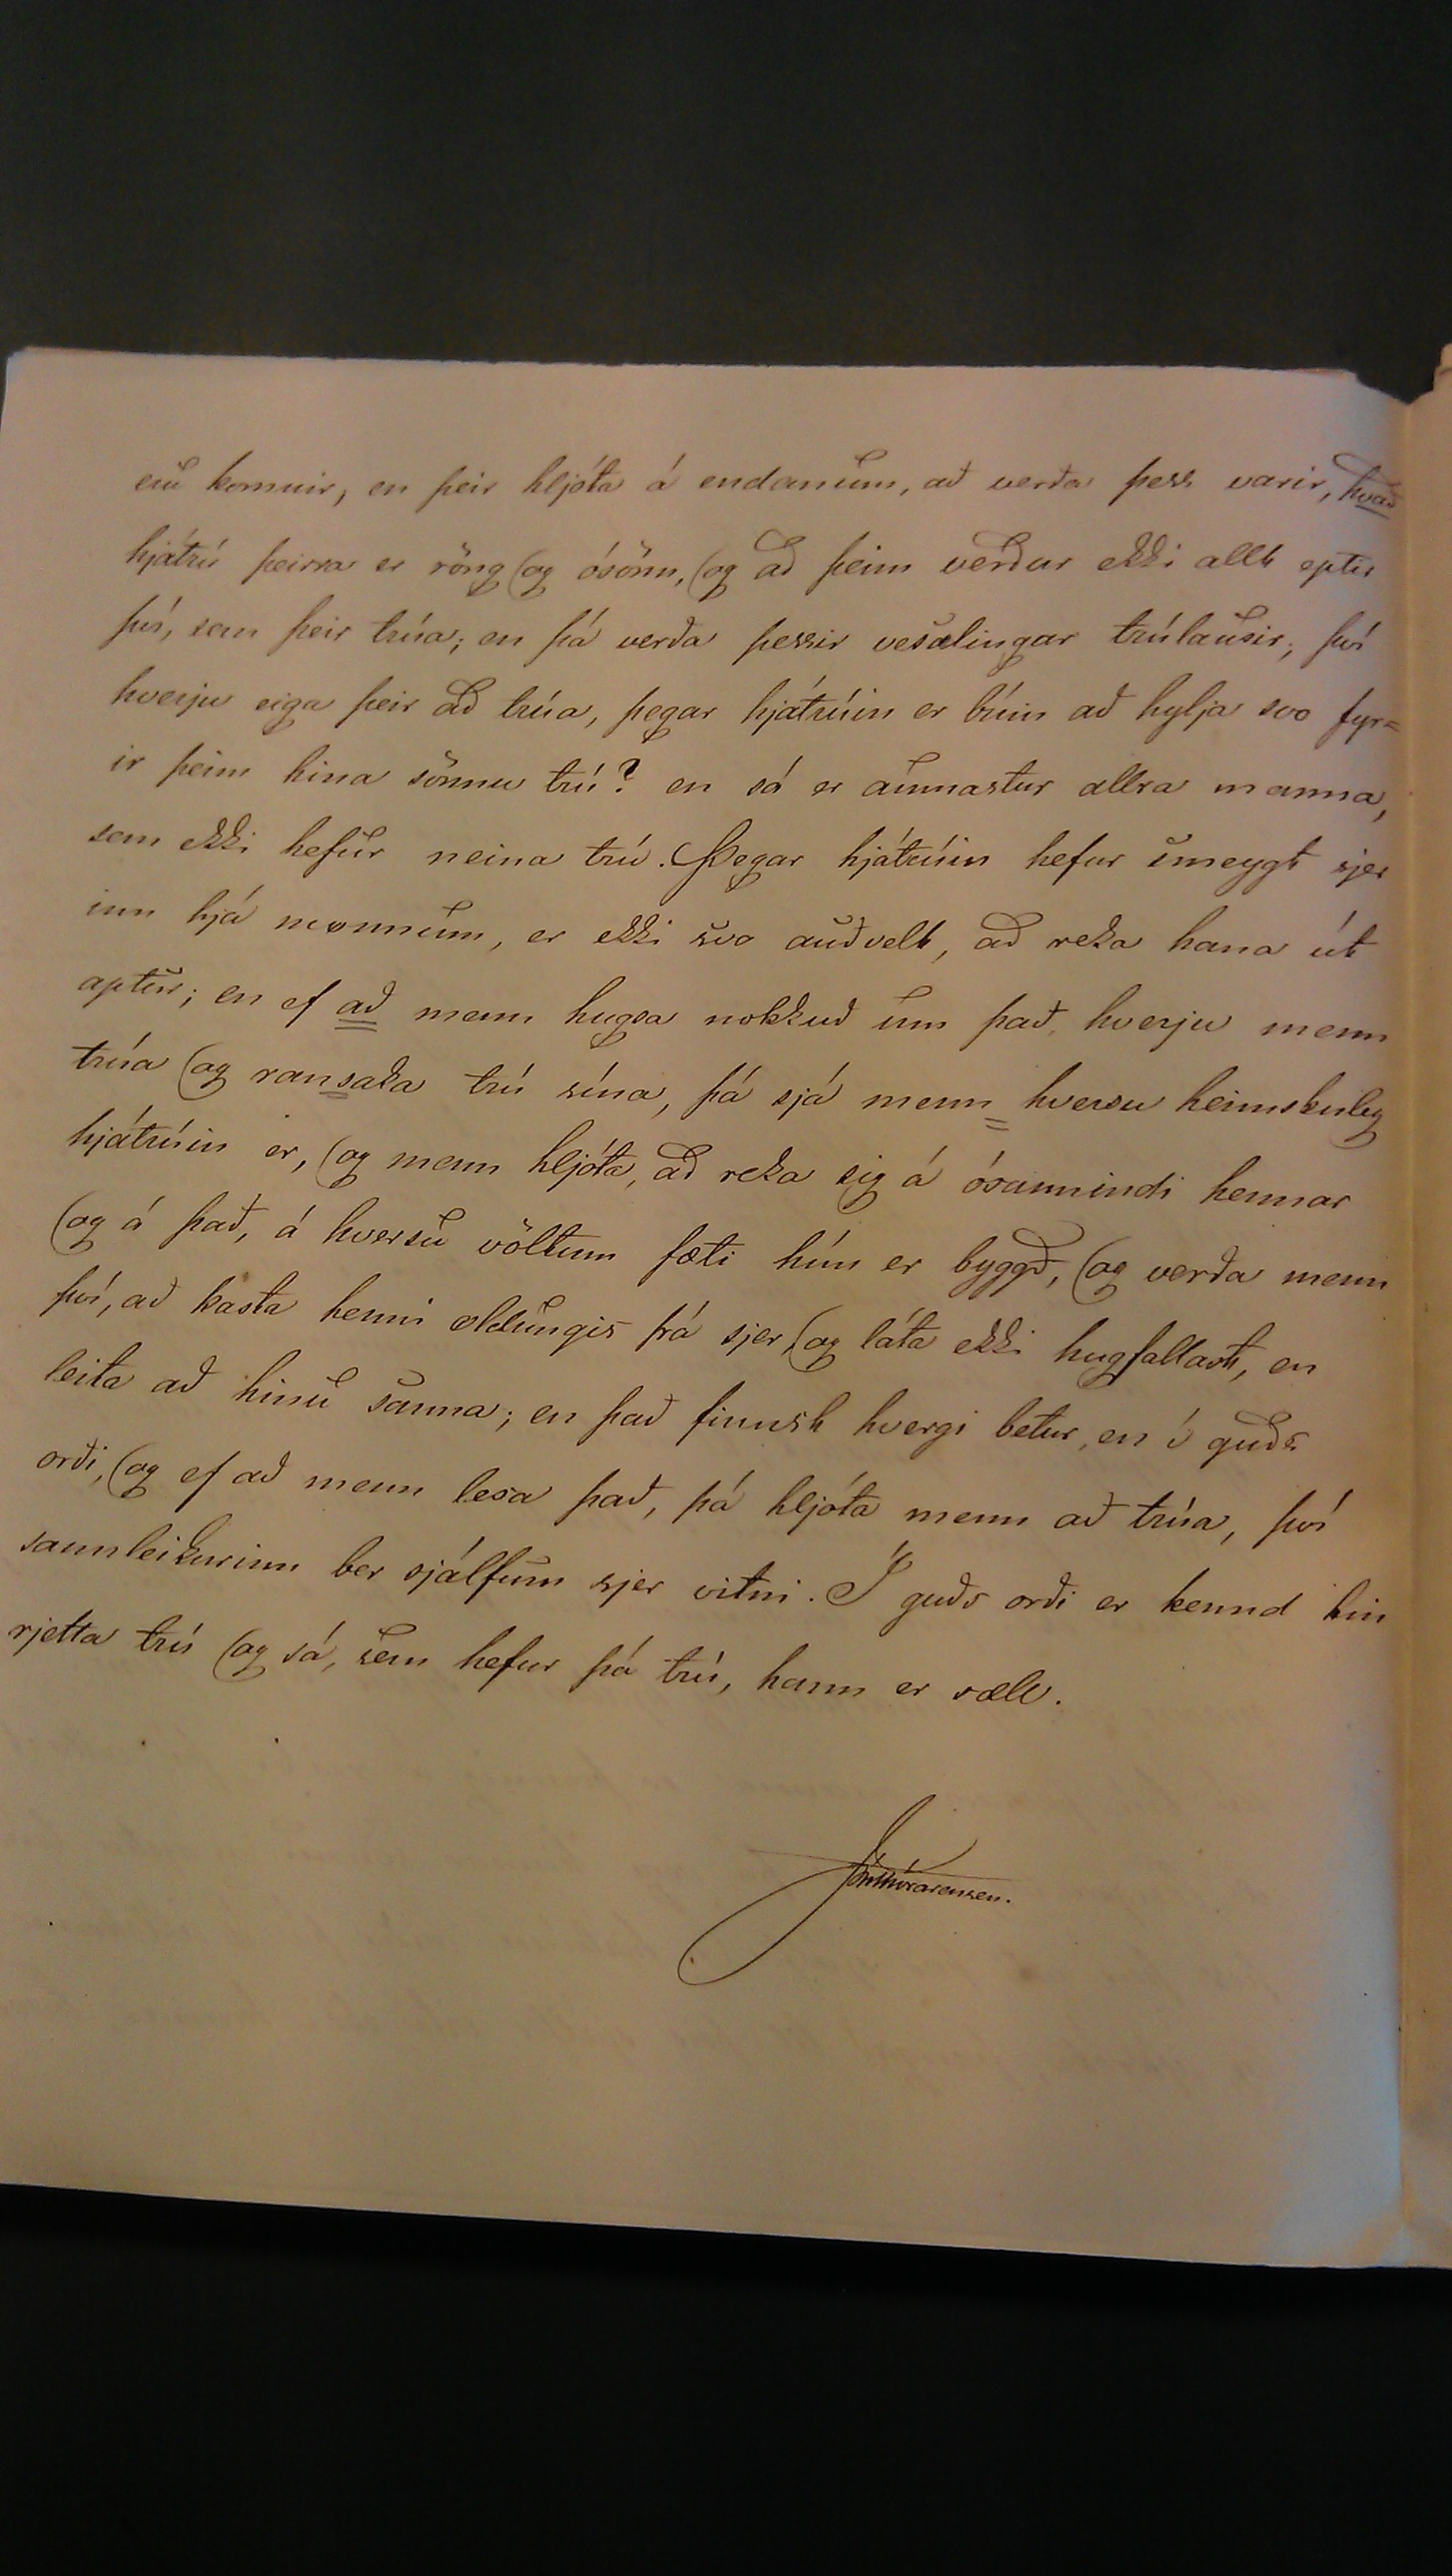 eru komnir, en þeir hljóta á endanum, að verða þess varir, hvað
hjátrú þeirra er röng og ósönn, og að þeim verður ekki allt eptir
því, sem þeir trúa; en þá verða þessir vesalingar trúlausir; því
hverju eiga þeir að trúa, þegar hjátrúin er búin að hylja svo fyr=
ir þeim hina sönnu trú? en sá er aumastur allra manna,
sem ekki hefur neina trú. Þegar hjátrúin hefur smeygt sjer
inn hjá monnum, er ekki svo auðvelt, að reka hana út
aptur; en ef að menn hugsa nokkuð um það, hverju menn
trúa og ransaka trú sína, þá sjá menn hversu heimskuleg
hjátrúin er, og menn hljóta, að reka sig á ósannindi hennar
og á það, á hversu völtum fæti hún er byggð, og verða menn
því, að kasta henni oldungis frá sjer og láta ekki hugfallast, en
leita að hinu sanna; en það finnsk hvergi betur, en í guðs
orði, og ef að menn lesa það, þá hljóta menn að trúa, því
sannleikurinn ber sjálfum sjer vitni. Í guðs orði er kennd hin
rjetta trú og sá, sem hefur þá trú, hann er sæll.